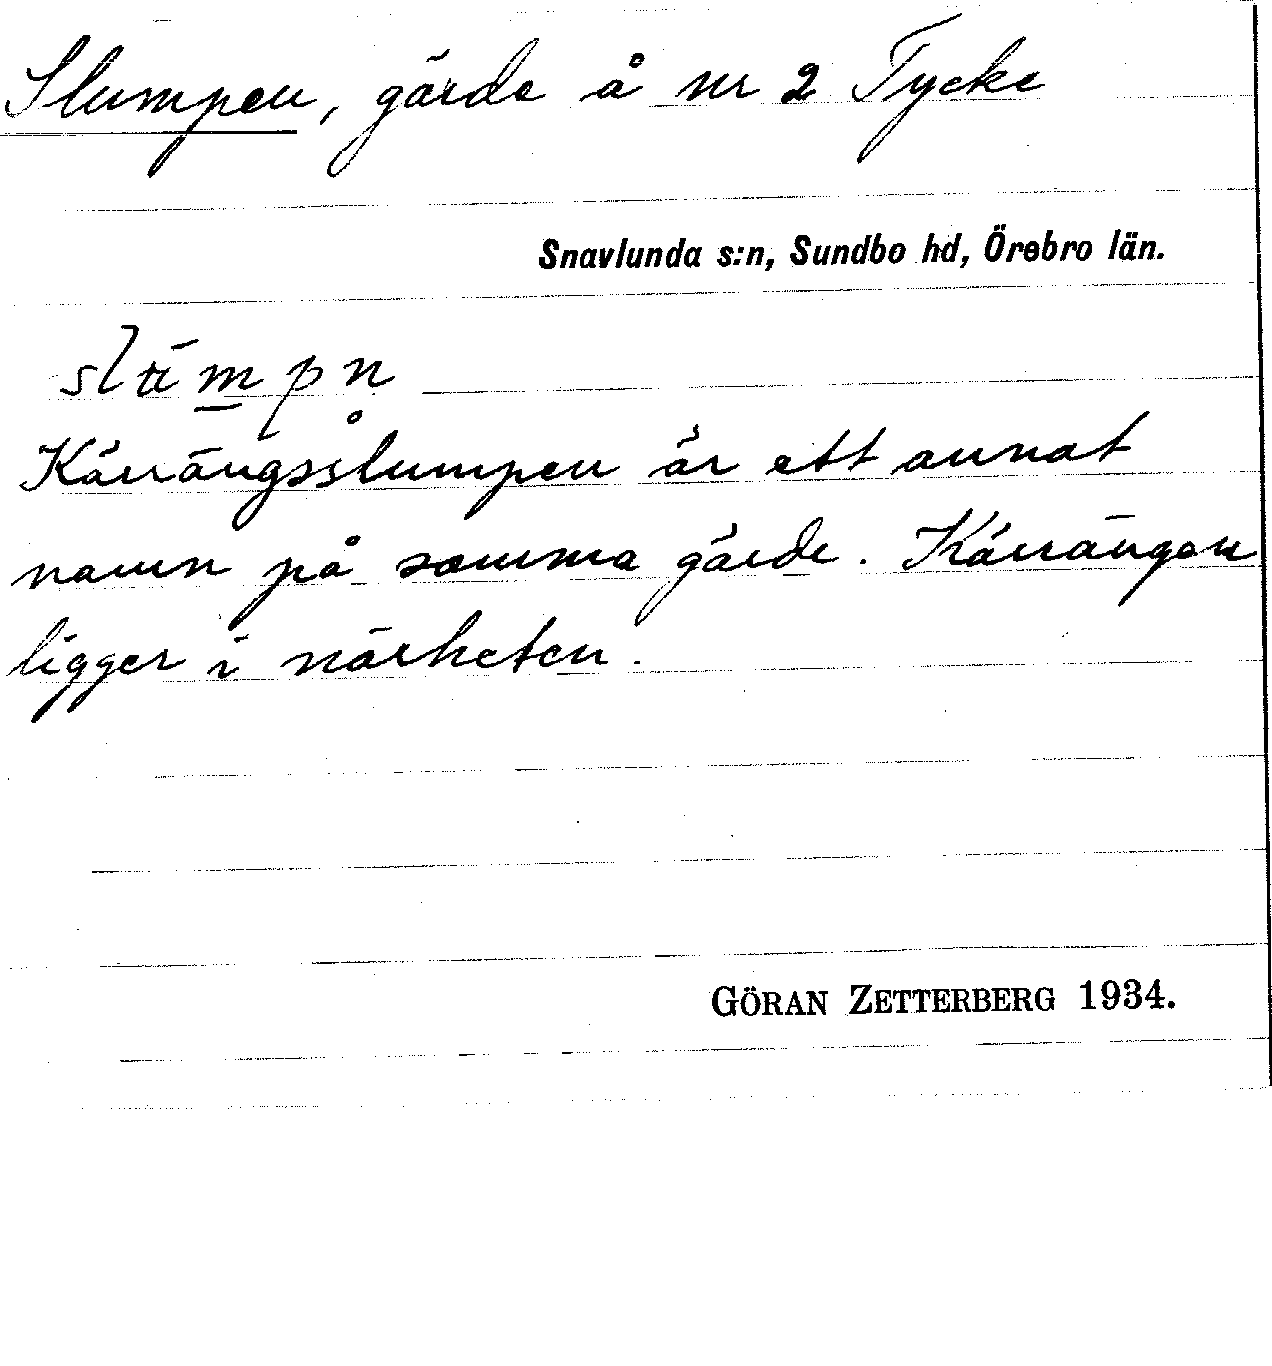 Slumpen, gärde å nr 2 Tycke
Snavlunda s:n, Sundbo hd, Örebro län.
Kärrängsslumpen är ett annat
namn på samma gärde. Kärrängen
ligger i närheten.
GÖRAN ZETTERBERG 1934.